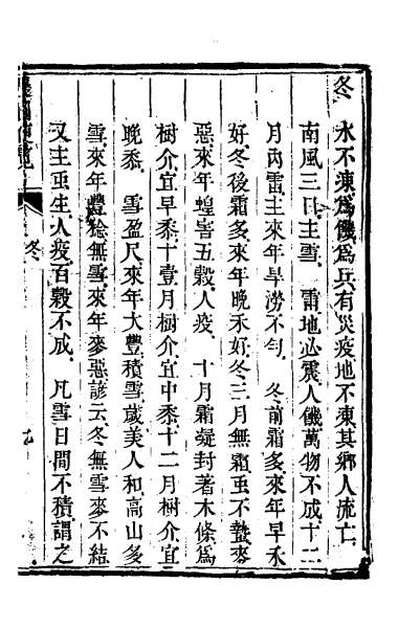 冬　水不凍為饑為兵有災疫地不凍其鄉人流亡
南風三日主雪　雷地必震人饑萬物不成十二
月內雷主來年旱澇不勻　冬前霜多來年早禾
好冬後霜多來年晚禾好冬三月無霜虫不蟄麥
惡來年蝗害五穀人疫　十月霜凝封著木條為
樹介宜早黍十壹月樹介宜中黍十二月樹介宜
晚黍　雪盈尺來年大豐積雪歲美人和高山多
雪來年豐稔無雪來年麥惡諺云冬無雪麥不結
又主虫生人疫百穀不成　凡雪日間不積謂之
冬
九